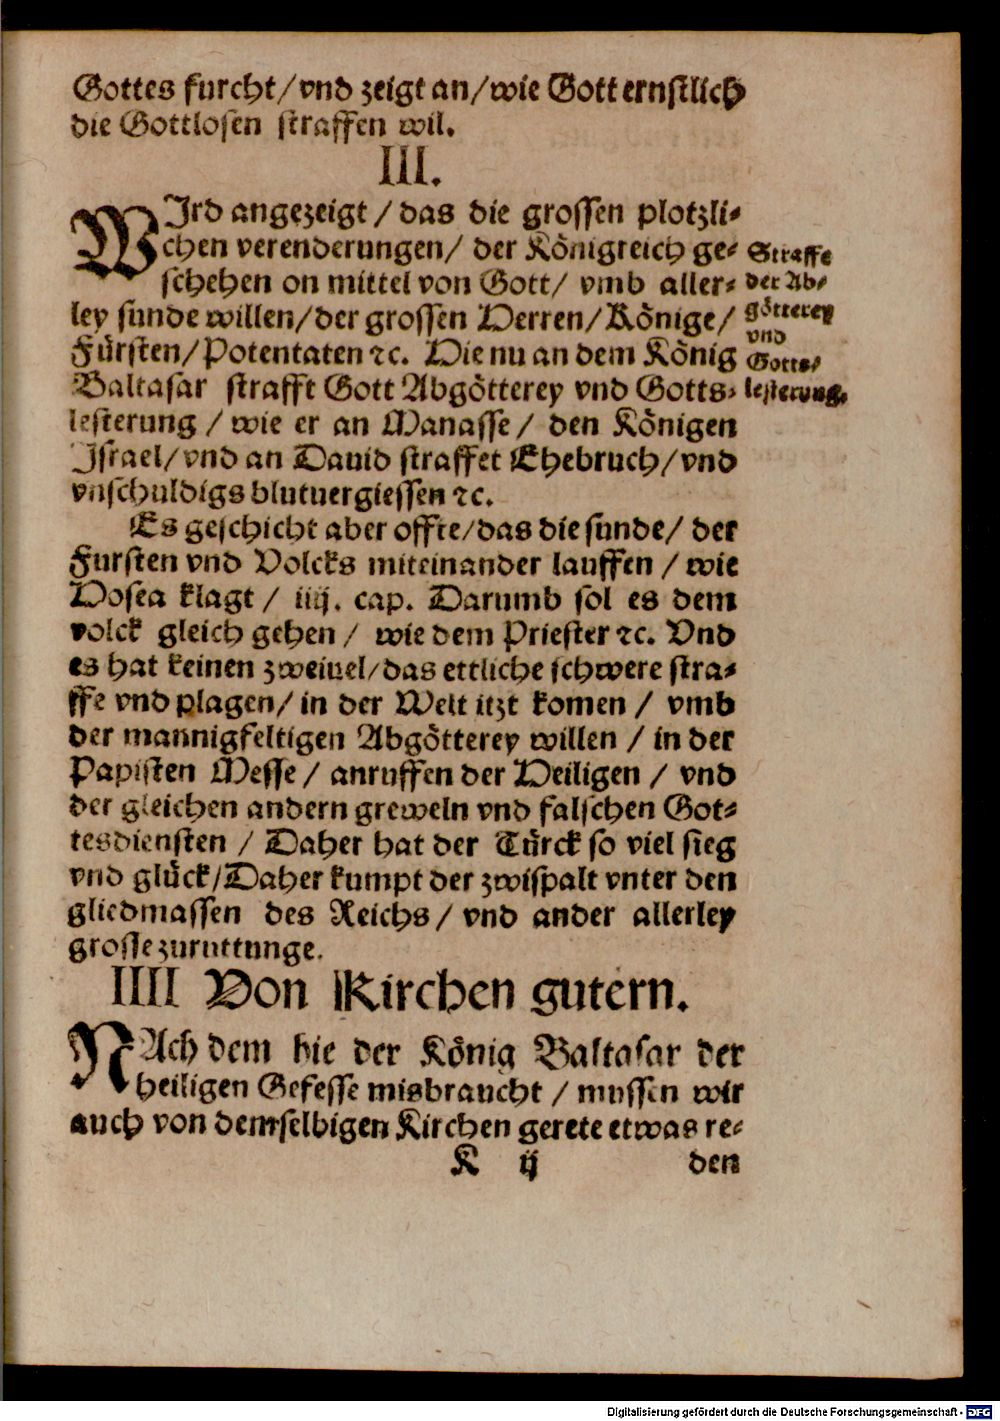 Gottes furcht/vnd zeigt an/wie Gott ernstlich
die Gottlosen straffen wil.
III.
WJrd angezeigt / das die grossen plotzli-
chen verenderungen/ der Königreich ge-
schehen on mittel von Gott/ vmb aller-
ley sunde willen/der grossen Herren/Könige/
Fürsten/Potentaten ꝛc. Hie nu an dem König
Baltasar strafft Gott Abgötterey vnd Gotts-
lesterung / wie er an Manasse / den Königen
Jsrael/vnd an Dauid straffet Ehebruch/vnd
vnschuldigs blutuergiessen ꝛc.
Straffe
der Ab-
götterey
vnd
Gotts-
lesterung.
Es geschicht aber offte/das die sunde/ der
Fursten vnd Volcks miteinander lauffen / wie
Hosea klagt / iiij. cap. Darumb sol es dem
volck gleich gehen / wie dem Priester ꝛc. Vnd
es hat keinen zweiuel/das ettliche schwere stra-
ffe vnd plagen/ in der Welt itzt komen / vmb
der mannigfeltigen Abgötterey willen / in der
Papisten Messe / anruffen der Heiligen / vnd
der gleichen andern greweln vnd falschen Got-
tesdiensten / Daher hat der Türck so viel sieg
vnd glück/Daher kumpt der zwispalt vnter den
gliedmassen des Reichs / vnd ander allerley
grosse zuruttunge.
IIII Von Kirchen gutern.
NAch dem hie der König Baltasar der
heiligen Gefesse misbraucht / mussen wir
auch von demselbigen Kirchen gerete etwas re-
K ij den
Digitalisierung gefördert durch die Deutsche Forschungsgemeinschaft - DFG